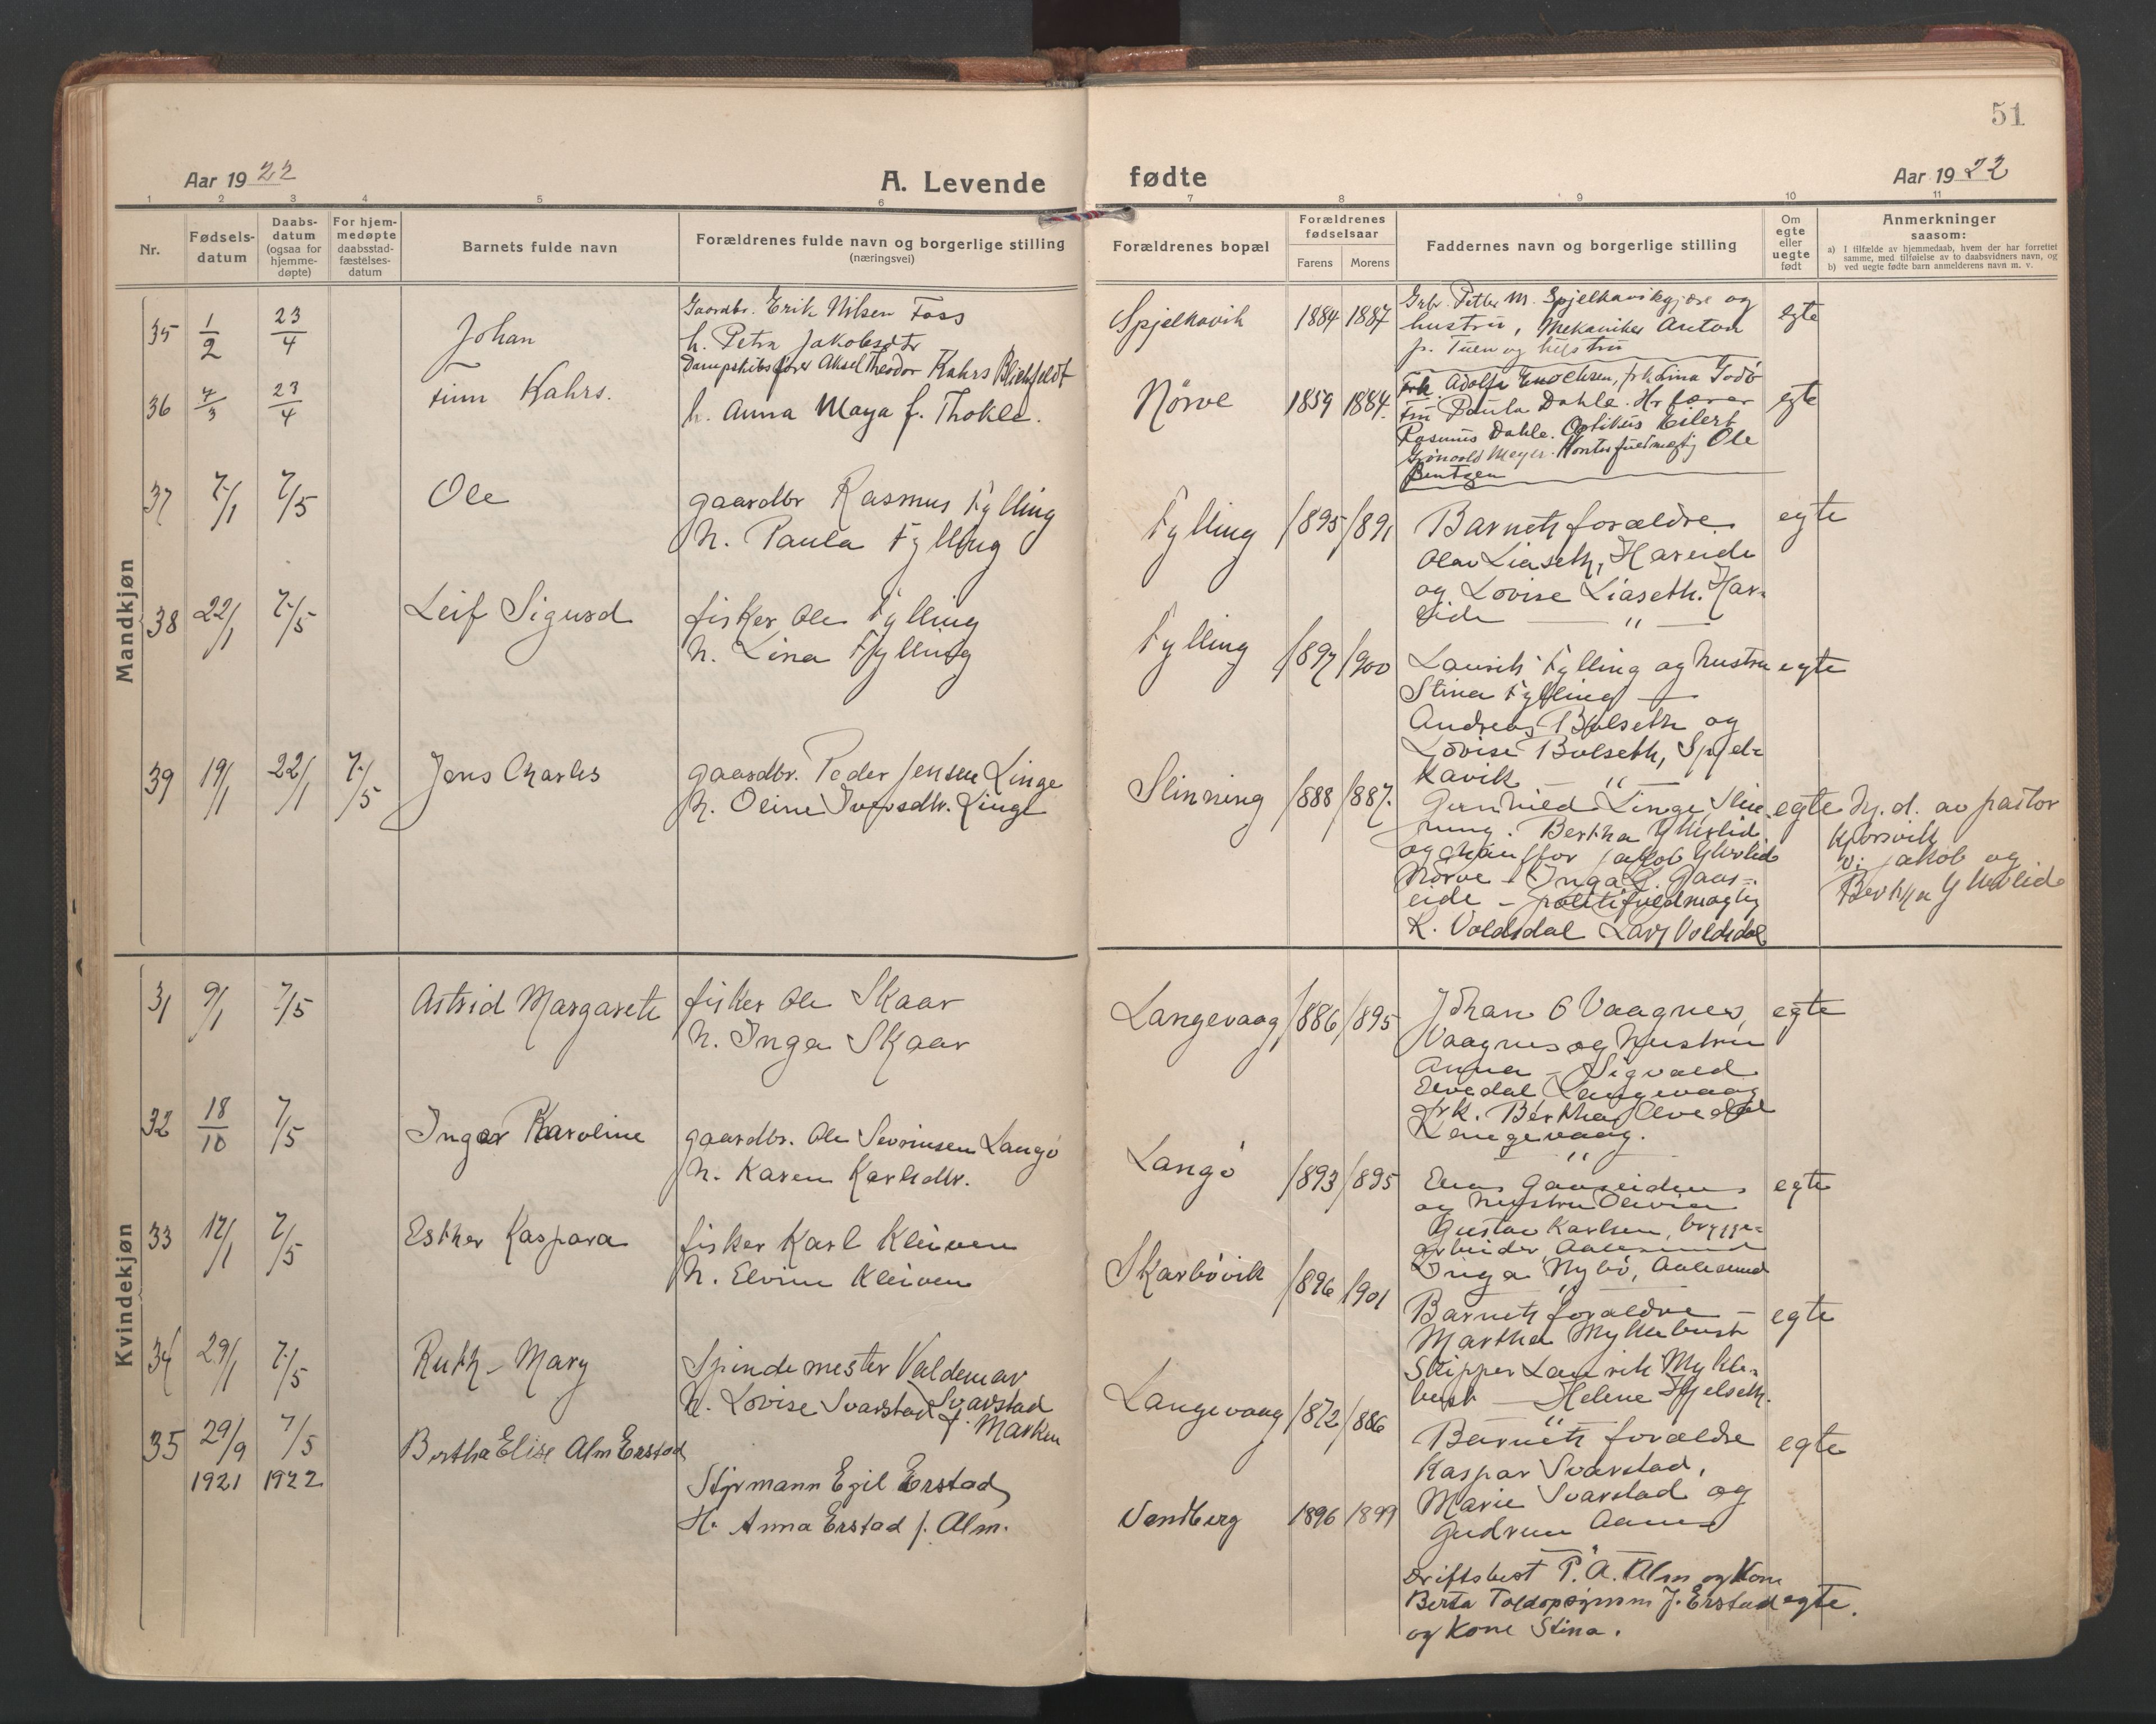 51
Aar 1922
A. Levende
fødte
Aar 1922
1 2 3 4 5 6 7 8 9 10 11
Nr.
Fødsels-
datum
Daabs-
datum
(ogsaa for
hjemme-
døpte)
For hjem-
medøpte
daabsstad-
fæstelses-
datum
Barnets fulde navn
Forældrenes fulde navn og borgerlige stilling
(næringsvei)
Forældrenes bopæl
Forældrenes
fødselsaar
Farens Morens
Faddernes navn og borgerlige stilling
Om
egte
eller
uegte
født
Anmerkninger
saasom:
a) I tilfælde av hjemmedaab, hvem der har forrettet
samme, med tilføielse av to daabsvidners navn, og
b) ved uegte fødte barn anmelderens navn m. v.
Mandkjøn
35 1/2 23/4 Johan
Gaardbr. Erik Nilsen Foss
h. Petra Jakobsdtr
Spjelkavik 1884 1887
Grbr. Petter M. Spjelkavikgjære og
hustru, Mekaniker Anton
egte
36 7/3 23/4 Finn Kahrs.
Dampskibsfører Aksel Theodor Kahrs Blichfeldt
h. Anna Maya f. Thokle.
Nørve 1859 1884
Frk. Adolfa Enochsen, frk Lina Godø
Fru Paula Dahle. Hr fører
Rasmus Dahle. Optikus Eilert
Grønvold Meyer. Kontorfuldmægtig Ole
Bentzen
egte
37 7/1 7/5 Ole
gaardbr Rasmus Fylling
h. Paula Fylling
Fylling 1895 1891
Barnets forældre
Olav Liaseth, Hareide
og Lovise Liaseth. Har-
eide — " —
egte
38 22/1 7/5 Leif Sigurd
fisker Ole Fylling
h. Lina Fylling
Fylling 1897 1900
Laurits Fylling og hustru
Stina Fylling —
Andreas Bolseth og
Lovise Bolseth, Spjel-
kavik — " —
egte
39 19/1 22/1 7/5 Jens Charles
gaardbr. Peder Jensen Linge
h. Oline Iversdtr. Linge
Slinning 1888 1887.
Gunhild Linge, Slin-
ning. Bertha Ytterlid
og chauffør Jakob Ytterlid
Nørve - Inga G. Gaas-
eide - politifuldmægtig
K. Voldsdal Lars Voldsdal
egte
Hj. d. av pastor
Kjørsvik
v. Jakob og
Bertha Ytterlid
Kvindekjøn
31 9/1 7/5 Astrid Margarete
fisker Ole Skaar
h. Inga Skaar
Langevaag 1886 1895
Johan O Vaagnes,
Vaagnes og hustru
Anna - Sigvald
Elvedal Langevaag
frk. Bertha Elvedal
Langevaag.
"
egte
32 18/10 7/5 Inger Karoline
gaardbr. Ole Sevrinsen Langø
h. Karen Karlsdtr.
Langø 1893 1895
Gaaseidnes
og hustru Olivia
Gustav Karlsen, brygge-
arbeider, Aalesund
Inga Nybø, Aalesund
"
egte
33 12/1 7/5 Esther Kaspara
fisker Karl Kleiven
h. Elvine Kleiven
Skarbøvik 1896 1901
Barnets forældre -
Martha Myklebust
Skipper Laurits Mykle-
bust — Helene Hjelseth.
"
egte
34 29/1 7/5 Ruth - Mary
Spindemester Valdemar
Svarstad
h. Lovise Svarstad
f. Marken
Langevaag 1872 1886
Barnets forældre
Kaspar Svarstad,
Marie Svarstad og
Gudrun
"
egte
35 29/9 7/5
1921 1922
Bertha Elise Alm Erstad
Styrmann Egil Erstad
H. Anna Erstad f. Alm.
Vendberg 1896 1899
Driftsbest P. A. Alm og Kone
Berta Toldopsynsm J. Erstad
og Kone Stina.
egte.